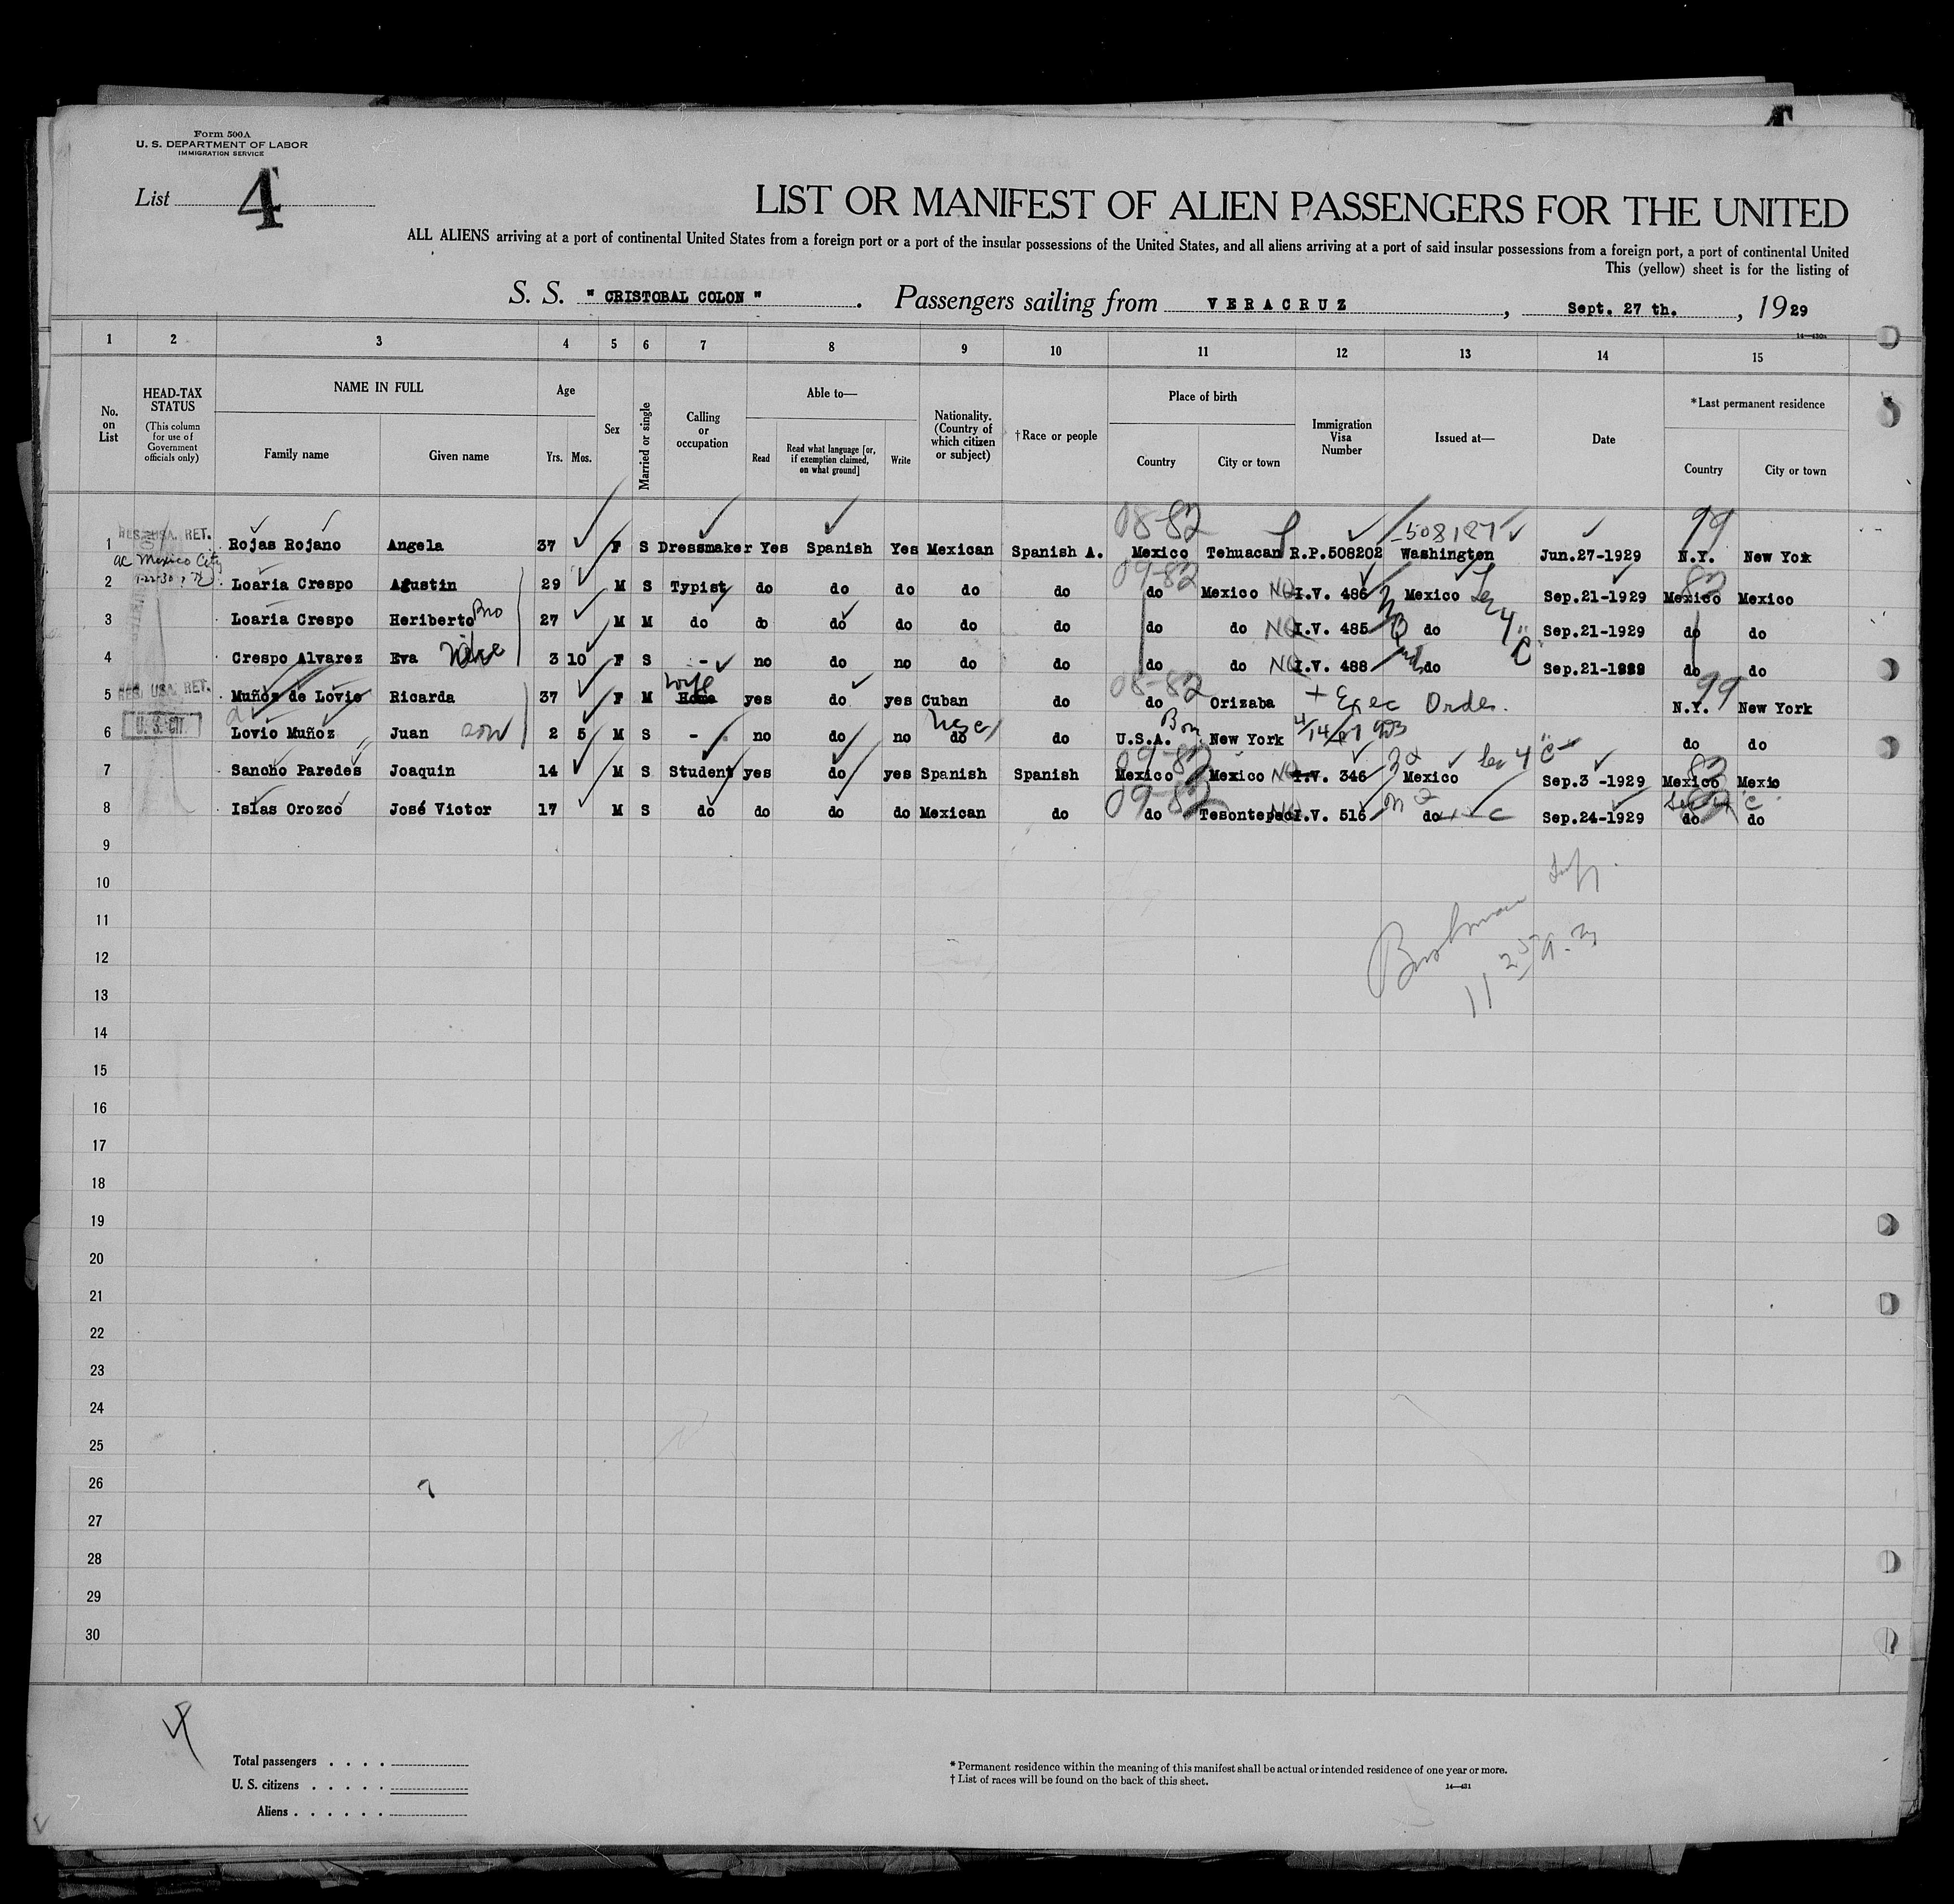 Form 500A
U. S. DEPARTMENT OF LABOR
IMMIGRATION SERVICE
List 4
LIST OR MANIFEST OF ALIEN PASSENGERS FOR THE UNITED
ALL ALIENS arriving at a port of continental United States from a foreign port or a port of the insular possessions of the United States, and all aliens arriving at a port of said insular possessions from a foreign port, a port of continental United
This (yellow) sheet is for the listing of
S. S. " CRISTOBAL COLON " . Passengers sailing from VERACRUZ , Sept. 27 th. , 1929
14—430a
1 2 3 4 5 6 7 8 9 10 11 12 13 14 15
No. on List
HEAD-TAX STATUS (This column for use of Government officials only)
NAME IN FULL
Family name Given name
Age
Yrs. Mos.
Sex
Married or single
Calling or occupation
Able to—
Read Read what language [or, if exemption claimed, on what ground] Write
Nationality. (Country of which citizen or subject)
†Race or people
Place of birth
Country City or town
Immigration Visa Number
Issued at—
Date
*Last permanent residence
Country City or town
08-82 -508187 99
1 RET. Rojas Rojano Angela 37 F S Dressmaker Yes Spanish Yes Mexican Spanish A. Mexico Tehuacan R.P.508202 Washington Jun.27-1929 N.Y. New Yok
Mexico City
09-82 82
2 Loaria Crespo Agustin 29 M S Typist do do do do do do Mexico NQ I.V. 486 Mexico Sep.21-1929 Mexico Mexico
3 Loaria Crespo Heriberto Bro 27 M M do do do do do do do do NQ I.V. 485 do Sep.21-1929 do do
4 Crespo Alvarez Eva 3 10 F S - no do no do do do do NQ I.V. 488 do Sep.21-1929 do do
wife 08-82 99
5 USA. RET. Muñoz de Lovio Ricarda 37 F M Home yes do yes Cuban do do Orizaba + Exec Order. N.Y. New York
6 U.S. CIT. Lovio Muñoz Juan son 2 5 M S - no do no do do U.S.A. Born New York do do
09-82 82
7 Sancho Paredes Joaquin 14 M S Student yes do yes Spanish Spanish Mexico Mexico NQ I.V. 346 Mexico Sec 4 C Sep.3 -1929 Mexico Mexic
09-82
8 Islas Orozco José Victor 17 M S do do do do Mexican do do Tesontepec I.V. 516 do Sep.24-1929 do do
9
10
11
12
13
14
15
16
17
18
19
20
21
22
23
24
25
26
27
28
29
30
Total passengers . . . .
U. S. citizens . . . . .
Aliens . . . . . .
* Permanent residence within the meaning of this manifest shall be actual or intended residence of one year or more.
† List of races will be found on the back of this sheet.
14—431